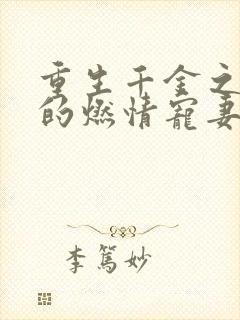 重生千金之
的燃情宠妻
李篤妙